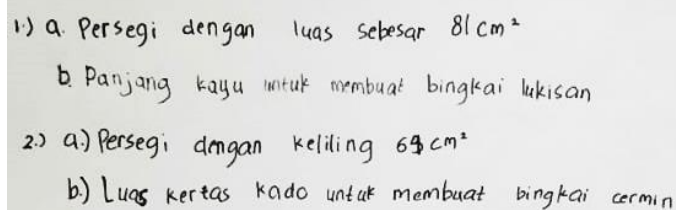 1.) a. Persegi dengan luas sebesar 81 cm²
b. Panjang kayu untuk membuat bingkai lukisan
2.) a.) Persegi dengan keliling cm²
b.) Luas kertas kado untuk membuat bingkai cermin